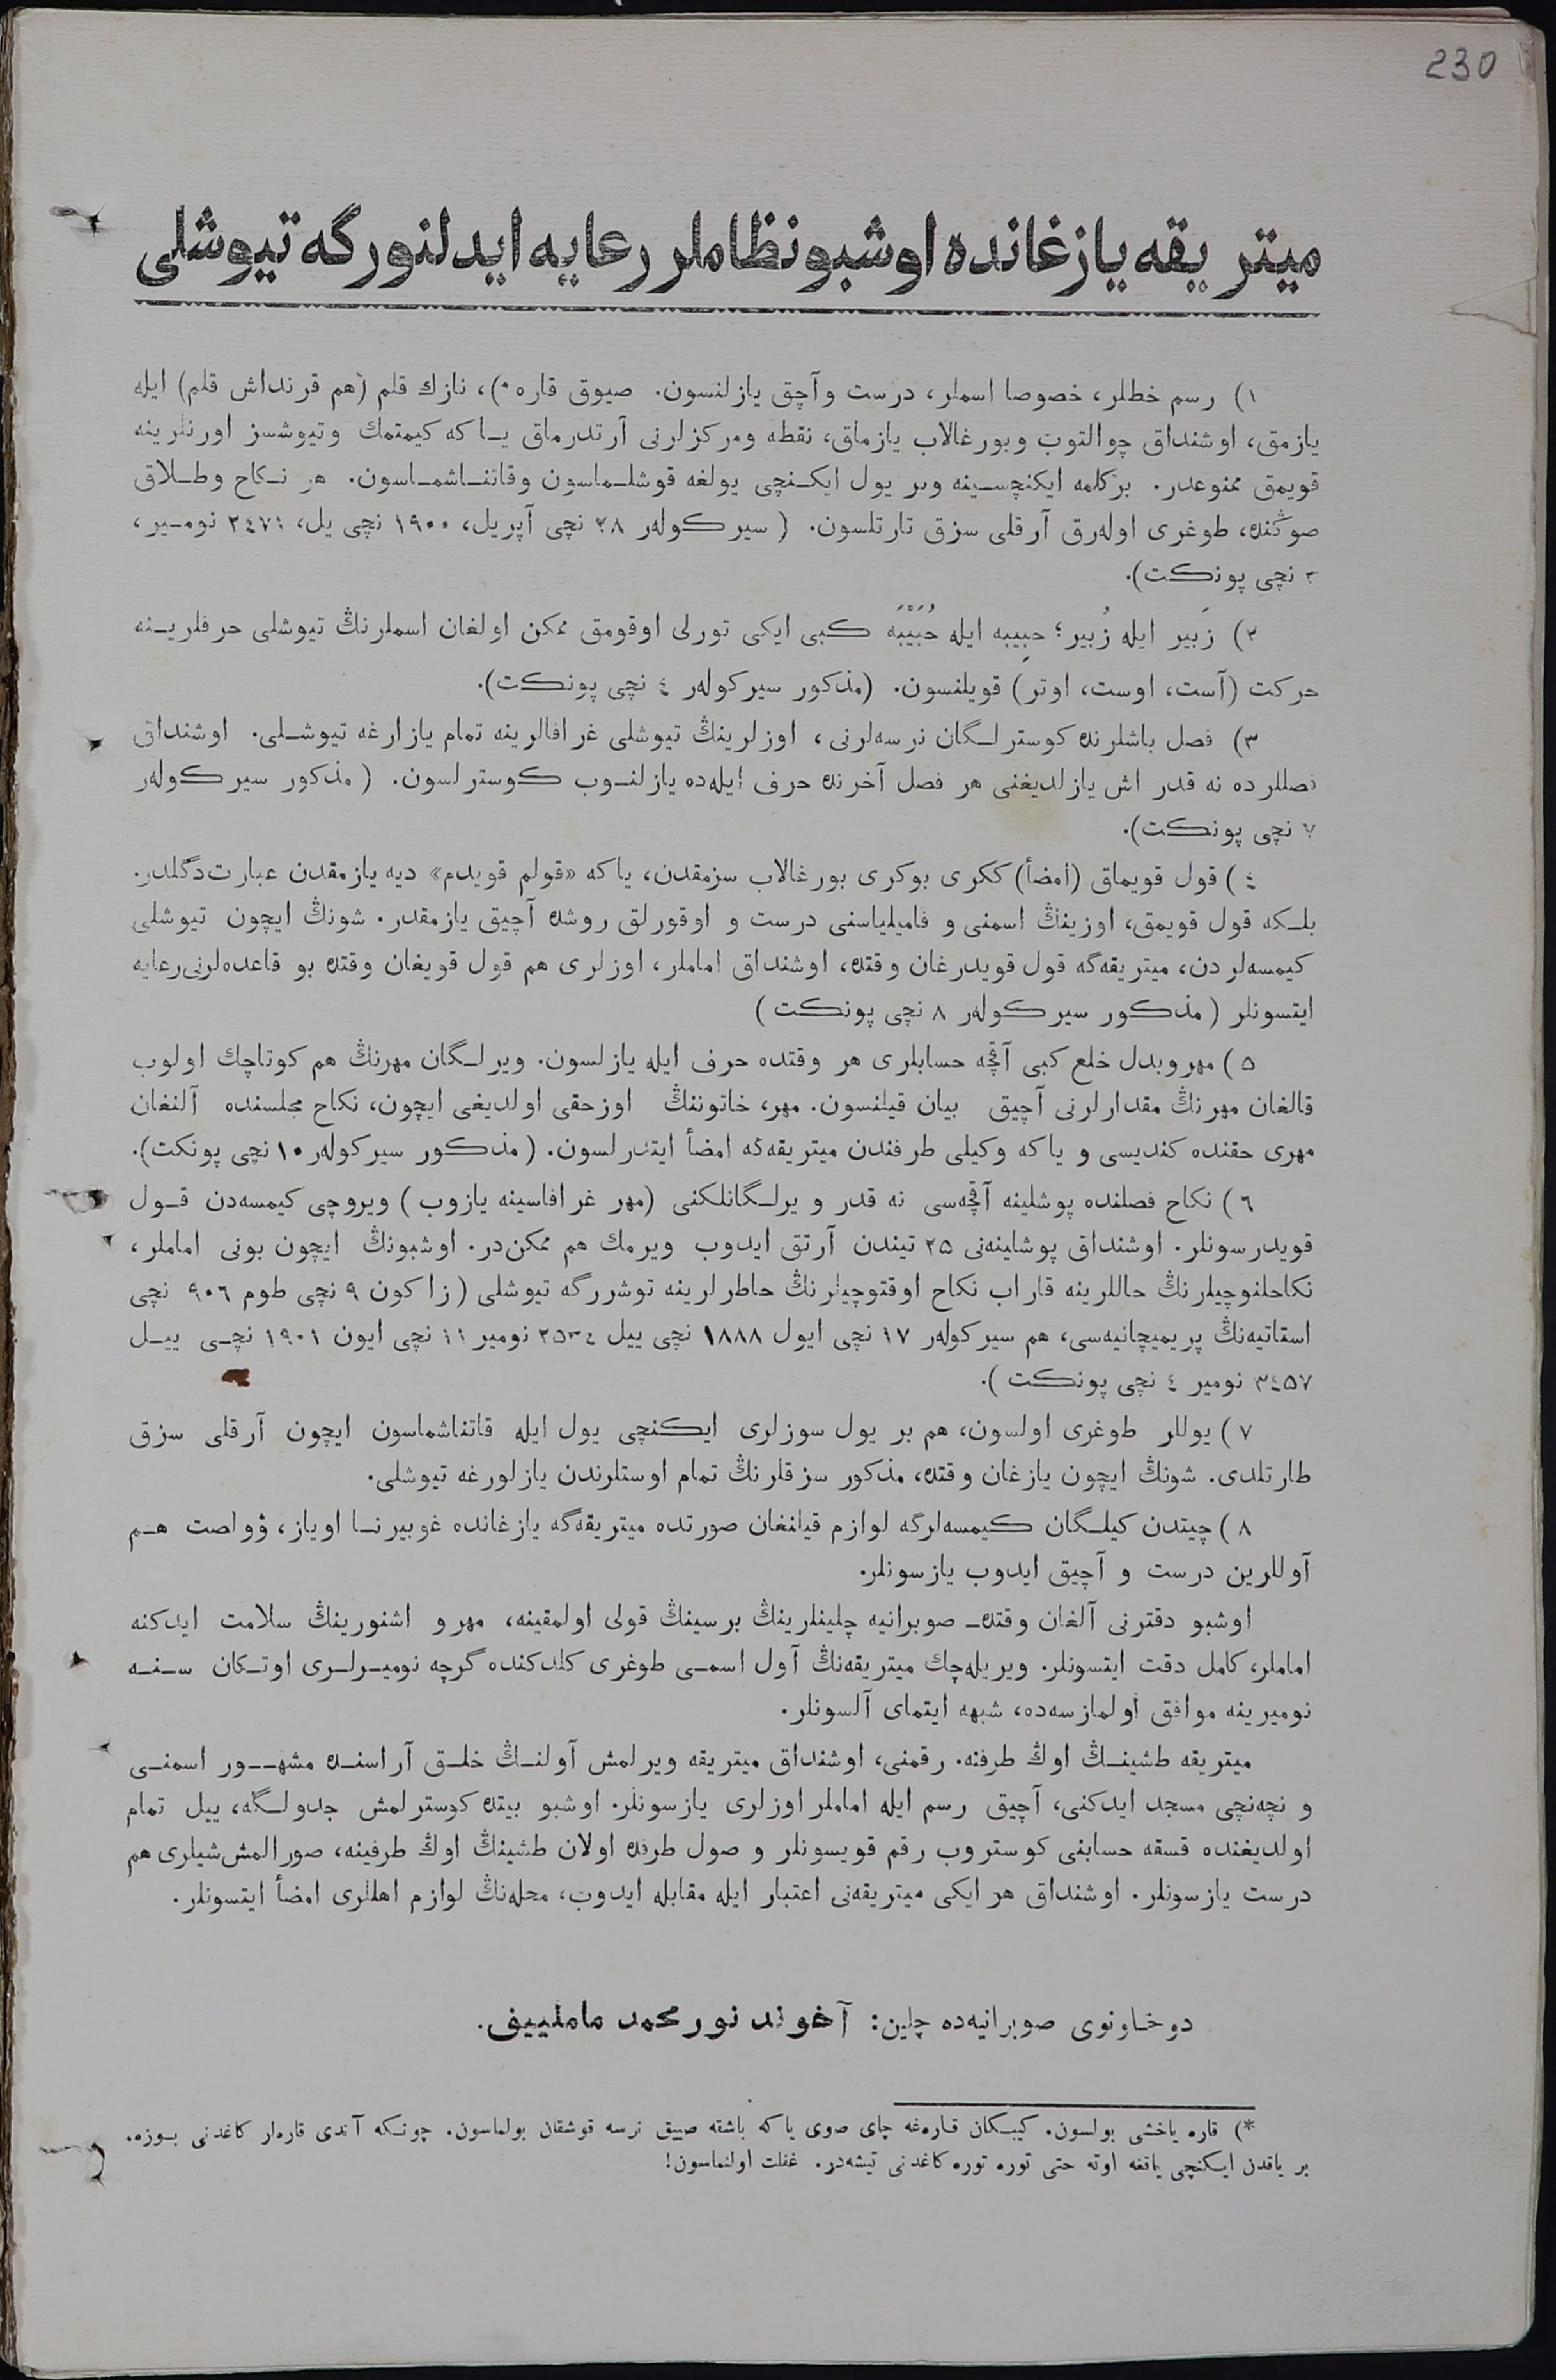 230
ميتريقه يازغانده اوشبو نظاملر رعايه ايدلنورگه تيوشلى
١) رسم خطلر، خصوصا اسملر، درست وآچق يازلنسون. صيوق قاره *)، نازك قلم (هم قرنداش قلم) ايله
يازمق، اوشنداق چوالتوب وبورغالاب يازماق، نقطه ومركزلرنى آرتدرماق يــا كه كيمتمك وتيوشسز اورنلرينه
قويمق ممنوعدر. بركلمه ايكنچسـينه وبر يول ايكـنچى يولغه قوشلـماسون وقاتنـاشمـاسون. هر نـكاح وطـلاق
صوڭنده، طوغرى اوله‌رق آرقلى سزق تارتلسون. (سيركوله‌ر ٢٨ نچى آپريل، ١٩٠٠ نچى يل، ٢٤٧١ نوميـر،
٣ نچى پونكت).
٢) زَبير ايله زُبير؛ حبِيبه ايله حُبَيْبَه كبى ايكى تورلى اوقومق ممكن اولغان اسملرنڭ تيوشلى حرفلريـنه
حركت (آست، اوست، اوتر) قويلنسون. (مذكور سيركوله‌ر ٤ نچى پونكت).
٣) فصل باشلرنده كوسترلـگان نرسه‌لرنى، اوزلرينڭ تيوشلى غرافالرينه تمام يازارغه تيوشـلى. اوشنداق
فصللرده نه قدر اش يازلديغنى هر فصل آخرنده حرف ايله‌ده يازلنـوب كوسترلسون. (مذكور سيركوله‌ر
٧ نچى پونكت).
٤) قول قويماق (امضأ) ككرى بوكرى بورغالاب سزمقدن، ياكه «قولم قويدم» ديه يازمقدن عبارت‌دگلدر.
بلـكه قول قويمق، اوزينڭ اسمنى و فاميلياسنى درست و اوقورلق روشده آچيق يازمقدر. شونڭ ايچون تيوشلى
كيمسه‌لردن، ميتريقه‌گه قول قويدرغان وقتده، اوشنداق اماملر، اوزلرى هم قول قويغان وقتده بو قاعده‌لرنى‌رعايه
ايتسونلر (مذكور سيركوله‌ر ٨ نچى پونكت)
٥) مهر وبدل خلع كبى آقچه حسابلرى هر وقتده حرف ايله يازلسون. ويرلـگان مهرنڭ هم كوتاچك اولوب
قالغان مهرنڭ مقدارلرنى آچيق بيان قيلنسون. مهر، خاتوننڭ اوزحقى اولديغى ايچون، نكاح مجلسنده آلنغان
مهرى حقنده كنديسى و ياكه وكيلى طرفندن ميتريقه‌گه امضأ ايتدرلسون. (مذكور سيركوله‌ر ١٠ نچى پونكت).
٦) نكاح فصلنده پوشلينه آقچه‌سى نه قدر ويرلـگانلكنى (مهر غرافاسينه يازوب) ويروچى كيمسه‌دن قـول
قويدرسونلر. اوشنداق پوشلينه‌نى ٢٥ تيندن آرتق ايدوب ويرمك هم ممكن‌در. اوشبونڭ ايچون بونى اماملر،
نكاحلنوچيلرنڭ حاللرينه قاراب نكاح اوقتوچيلرنڭ خاطرلرينه توشررگه تيوشلى (زاكون ٩ نچى طوم ٩٠٦ نچى
استاتيه‌نڭ پريميچانيه‌سى، هم سيركوله‌ر ١٧ نچى ايول ١٨٨٨ نچى ييل ٢٥٣٤ نومير ١١ نچى ايون ١٩٠١ نچـى ييـل
٣٤٥٧ نومير ٤ نچى پونكت).
٧) يوللر طوغرى اولسون، هم بر يول سوزلرى ايكنچى يول ايله قاتناشماسون ايچون آرقلى سزق
طارتلدى. شونڭ ايچون يازغان وقتده، مذكور سزقلرنڭ تمام اوستلرندن يازلورغه تيوشلى.
٨) چيتدن كيلـگان كيمسه‌لرگه لوازم قيلنغان صورتده ميتريقه‌گه يازغانده غوبيرنـا اوياز، ۋولصت هـم
آوللرين درست و آچيق ايدوب يازسونلر.
اوشبو دفترنى آلغان وقتده ـ صوبرانيه چلينلرينڭ برسينڭ قولى اولمقينه، مهر و اشنورينڭ سلامت ايدكنه
اماملر، كامل دقت ايتسونلر. ويريله‌چك ميتريقه‌نڭ آول اسمـى طوغرى كلدكنده گرچه نوميـرلـرى اوتـكان سـنـه
نوميرينه موافق اولمازسه‌ده، شبهه ايتماى آلسونلر.
ميتريقه طشينـڭ اوڭ طرفنه. رقمنى، اوشنداق ميتريقه ويرلمش آولنـڭ خلـق آراسنـده مشهــور اسمنـى
و نچه‌نچى مسجد ايدكنى، آچيق رسم ايله اماملر اوزلرى يازسونلر. اوشبو بيتده كوسترلمش جدولـگه، ييل تمام
اولديغنده قسقه حسابنى كوستروب رقم قويسونلر و صول طرفده اولان طشينڭ اوڭ طرفينه، صورالمش‌شيلرى هم
درست يازسونلر. اوشنداق هر ايكى ميتريقه‌نى اعتبار ايله مقابله ايدوب، محله‌نڭ لوازم اهللرى امضأ ايتسونلر.
دوخاونوى صوبرانيه‌ده چلين: آخوند نورمحمد ماملييف.
*) قاره ياخشى بولسون. كيبـكان قاره‌غه چاى صوى ياكه باشقه صييق نرسه قوشقان بولماسون. چونـكه آندى قاره‌لر كاغدنى بـوزه.
بر ياقدن ايـكنچى ياقغه اوته حتى توره توره كاغدنى تيشه‌در. غفلت اولنماسون!